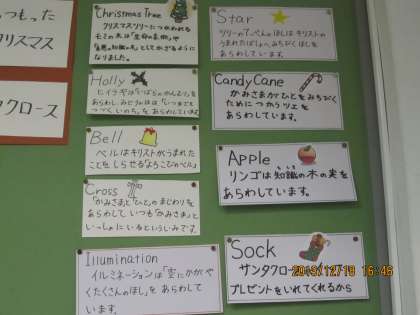 つもった
リスマス
タクロース
Christmas Tree
クリスマスツリーにつかわれる
モミの木は「生命の木」や
知識の木」としてかざるように
なりました。
Holly
ヒイラギは「いばらのかんむり」を
あらわし、みどりのはは「いつまでも
つづくいのち」をあらわしています。
Bell
ベルはキリストがうまれた
ことをしらせる「よろこびのベル」
Cross
「かみさま」と「ひと」のまじわりを
あらわしていつも「かみさま」と
いっしょにいるといういみです。
Illumination
イルミネーションは「空にかがやく
くたくさんのほし」をあらわして
います。
Star
ツリーのてっぺんのほしはキリストの
うまれたばしょへみちびくほしを
あらわしています。
Candy Cane
かみさまがひとをみちびく
ためにつかうツエを
あらわしています。
Apple
リンゴは知識の木の実を
あらわしています。
Sock
サンタクロース
プレゼントをいれてくれるから
2013/12/18 16:46